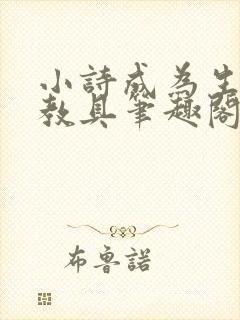 小詩成為生
教具筆趣閣
布魯諾